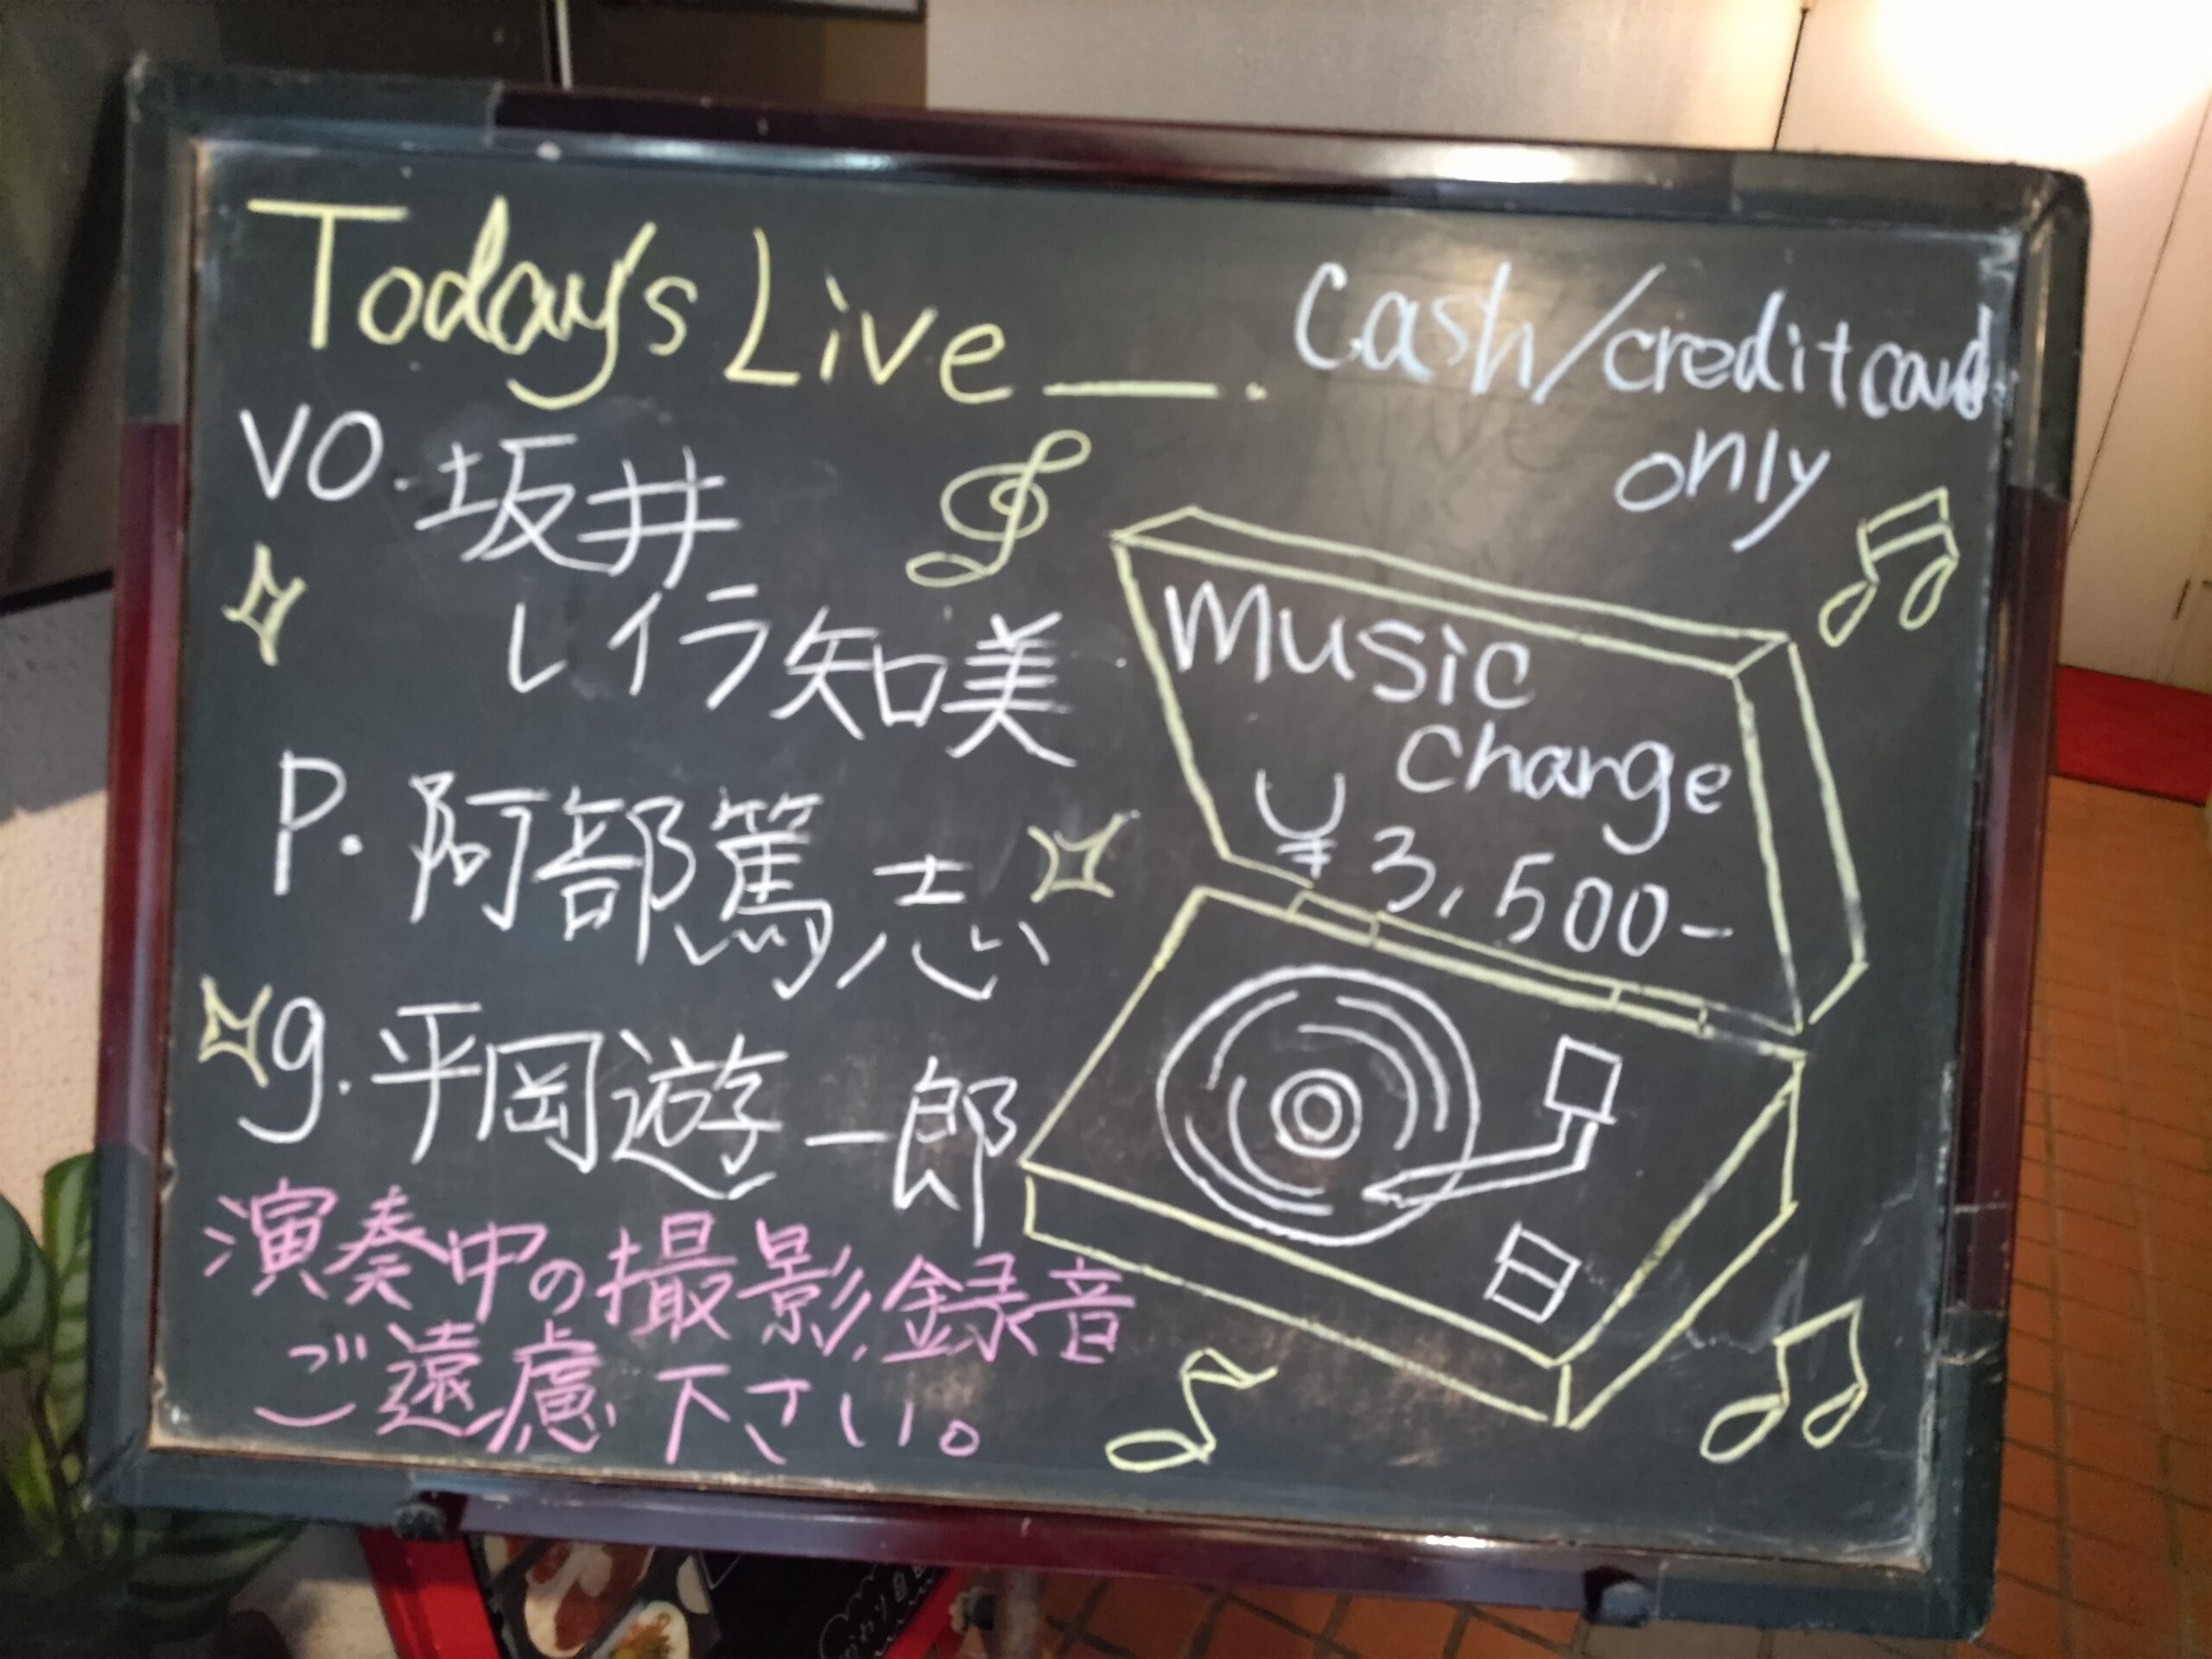 Today's Live ー.
Cash/credit card
only
VO. 坂井
レイラ知美
P. 阿部篤志
g. 平岡遊一郎
Music
charge
¥3,500-
演奏中の撮影,録音
ご遠慮下さい。